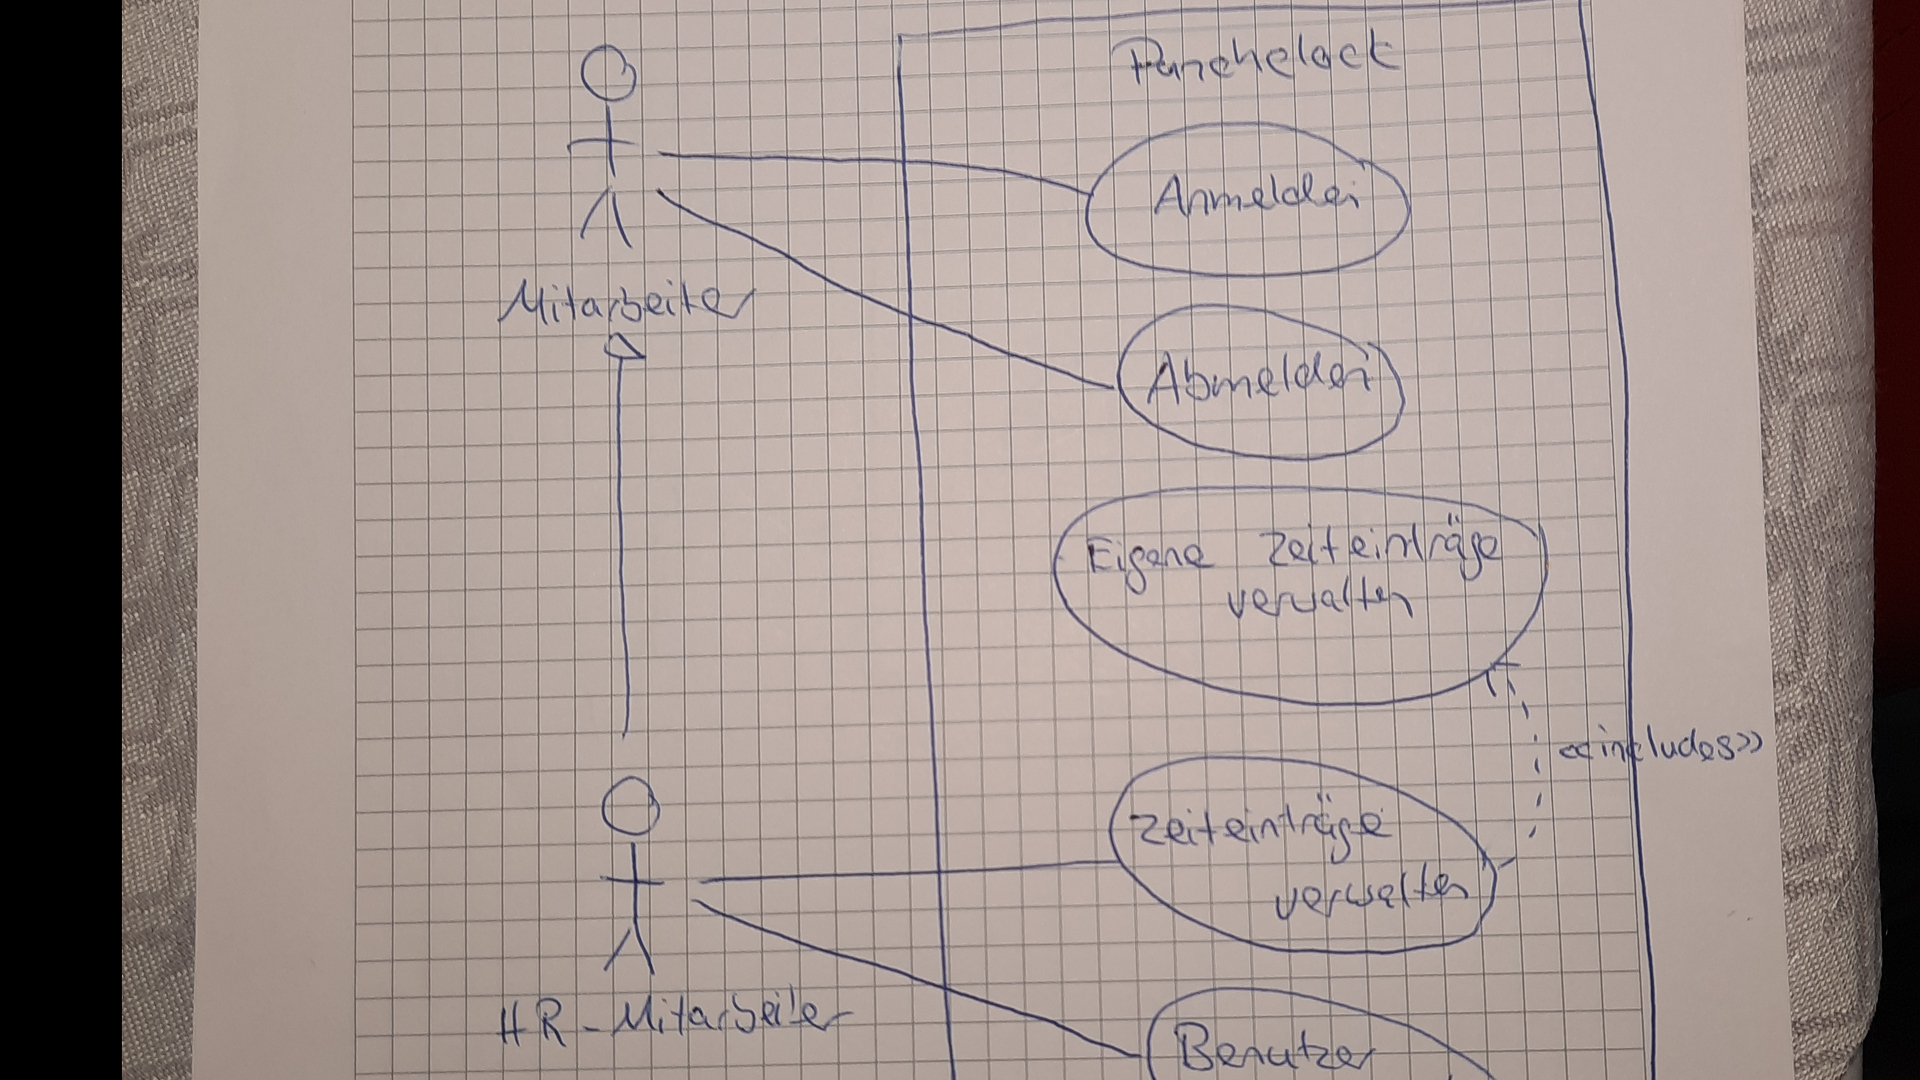 Punchclock
Anmelden
Mitarbeiter
Abmelden
Eigene Zeiteinträge
verwalten
<<includes>>
Zeiteinträge
verwalten
HR-Mitarbeiter
Benutzer